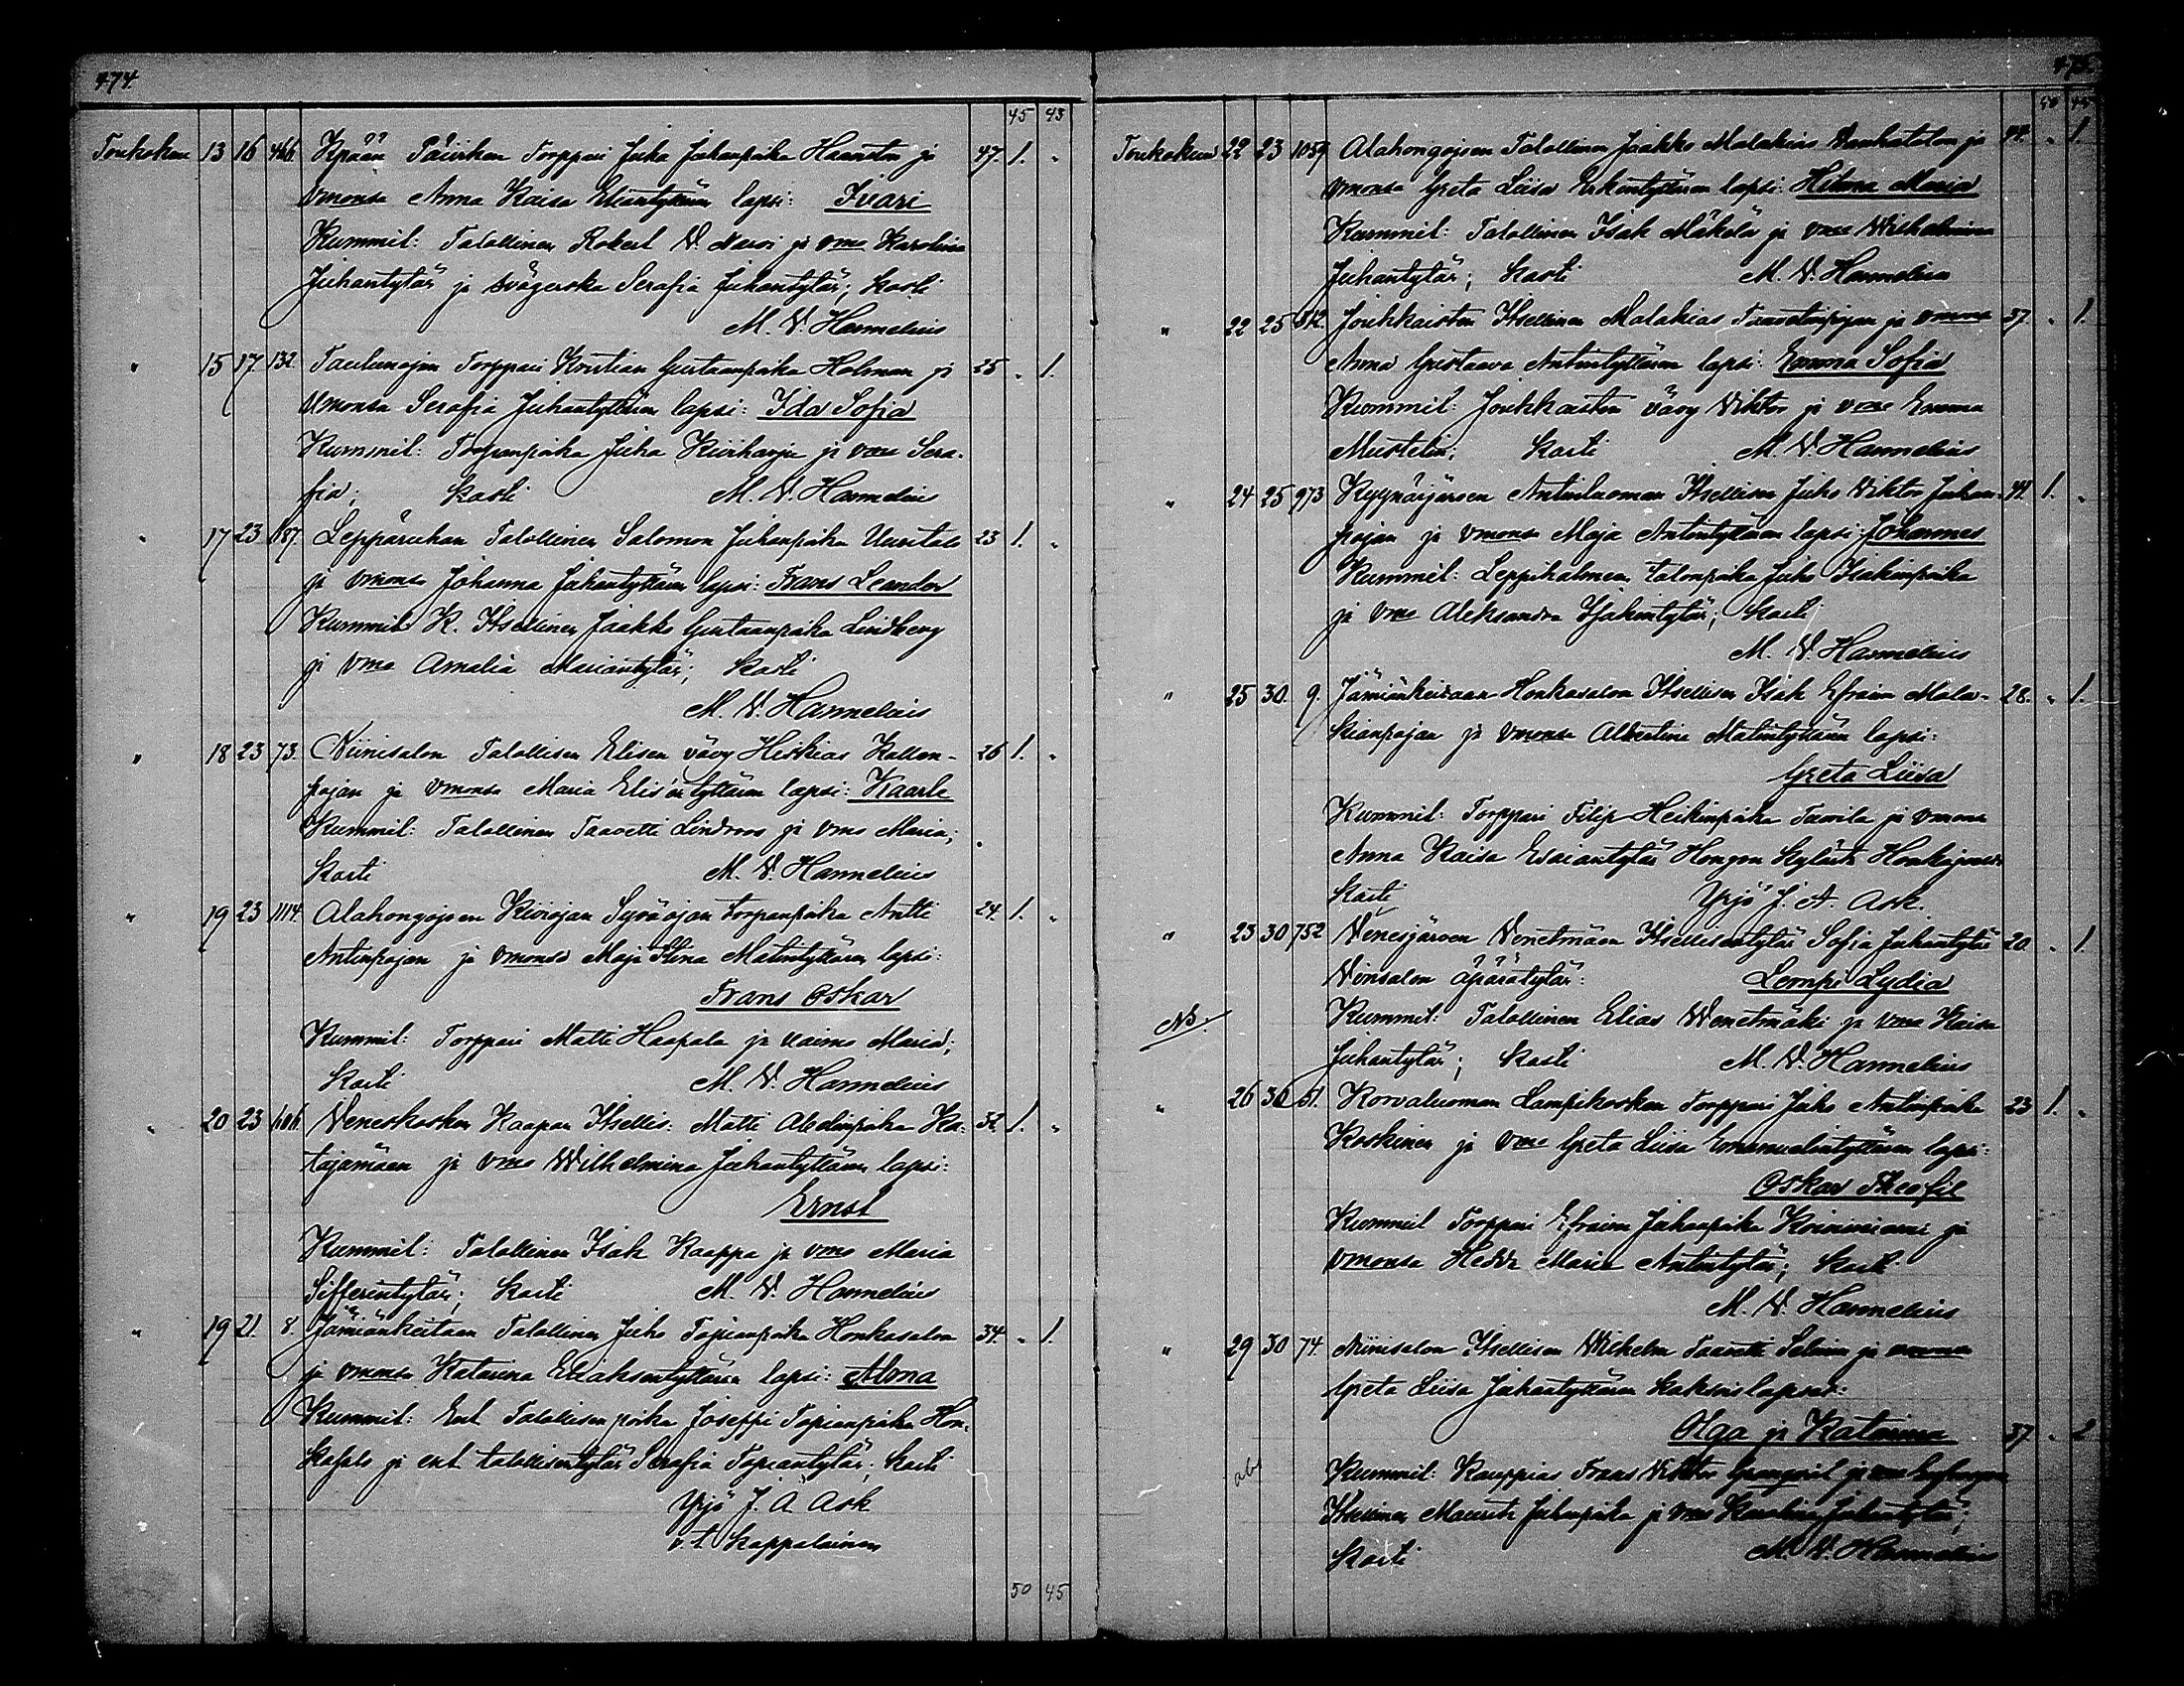 474.
45 43
Toukokuu 13 16 466. Kpään Päivikem Torppari Juha Juhanpoika Haaviston ja 47. 1. "
vmonsa Anna Kaisa Eliantyttären lapsi: Ivari
Kummit: Talollinen Robert W. Narvi ja vmo Karolina
Juhantytär ja svägerska Serafia Juhantytär; kasti
M. W. Hannelius
" 15 17. 132. Torppari Kristian Gustaanpoika Holman ja 25 " 1.
Vmonsa Serafia Juhantyttären lapsi: Ida Sofia
Kummit: Torpanpoika Juha Kiviharju ja vmo Sera-
fia; kasti M. W. Hannelius
" 17 23 187. Leppäruhan Talollinen Salomon Juhanpoika Uusitalo 23 1. "
ja vmonsa Johanna Juhantyttären lapsi: Frans Leander
Kummit K. Itsellinen Jaakko Gustaanpoika Lindberg
ja vmo Amalia Mariantytär; kasti
M. W. Hannelius
" 18 23 73. Niinisalon Talollisen Elisen vävy Hiskias Kallen- 26 1. "
pojan ja vmonsa Maria Elis'en tyttären lapsi: Kaarle
Kummit: Talollinen Taavetti Lindroos ja vmo Maria;
kasti M. W. Hannelius
" 19 23 1114. Alahongojoen Kiviojan Syväojan torpanpoika Antti 24. 1. "
Antinpojan ja vmonsa Maja Stina Matintyttären lapsi:
Frans Oskar
Kummit: Torppari Matti Haapala ja vaimo Maria;
kasti M. W. Hannelius
" 20 23 606. Veneskosken Kaapan Itsellis: Matti Abelinpoika Ka- 32. 1. "
tajamäen ja vmo Wilhelmina Juhantyttären lapsi:
Ernst
Kummit: Talollinen Isak Kaappa ja vmo Maria
Sifferintytär; kasti M. W. Hannelius
" 19 21. 8. Jämiänkeitaan Talollinen Juho Tapianpoika Honkasalon 34. " 1.
ja vmonsa Katarina Eliaksentyttären lapsi: Alma
Kummit: Ent Talollisen poika Joseppi Tapianpoika Hon-
kasalo ja ent talollisentytär Serafia Tapiantytär; kasti
Yrjö J. A. Ask
v. t. kappalainen
50 45
475.
50 45
Toukokuu 22 23 1059 Alahongojoen Talollinen Jaakko Malakias Vanhatalon ja 44. " 1.
vmonsa Greta Liisa Erkintyttären lapsi: Hilma Maria
Kummit: Talollinen Isak Mäkelä ja vmo Wilhelmina
Juhantytär; kasti M. W. Hannelius
" 22 25 812. Joukkaisten Itsellinen Malakias Taavetinpojan ja vmonsa 37. " 1.
Anna Gustaava Antintyttären lapsi: Emma Sofia
Kummit: Joukkaisten vävy Viktor ja vmo Emma
Mustelin; kasti M. W. Hannelius
" 24 25 973 Kyynärjärven Antinluoman Itsellisen Juho Viktor Juhan- 44. 1. "
pojan ja vmonsa Maja Antintyttären lapsi: Johannes
Kummit: Leppihalmeen talonpoika Juho Isakinpoika
ja vmo Aleksandra Isakintytär; kasti
M. W. Hannelius
" 25 30. 9. Jämiänkeitaan Honkasalon Itsellisen Isak Efraim Mala- 28. " 1.
kianpojan ja vmonsa Albertina Matintyttären lapsi:
Greta Liisa
Kummit: Torppari Filip Heikinpoika Tavila ja vmonsa
Anna Kaisa Esaiantytär Hongon kylästä
kasti Yrjö J. A. Ask.
" 23 30 752 Venesjärven Venetmäen Itsellisentytär Sofia Juhantytär 20. " 1.
Niinsalon äpärätytär: Lempi Lydia
NB. Kummit: Talollinen Elias Wenetmäki ja vmo Kaisa
Juhantytär; kasti M. W. Hannelius
" 26 30 51. Korvaluoman Lampikosken Torppari Juho Antinpoika 23 1. "
Koskinen ja vmo Greta Liisa Emanuelintyttären lapsi:
Oskar Theofil
Kummit Torppari Efraim Juhanpoika ja
vmonsa Hedda Maria Antintytär; kasti
M. W. Hannelius
" 29 30 74. Niinisalon Itsellisen Wilhelm Taavetti Selinin ja vmonsa
Greta Liisa Juhantyttären kaksoislapset:
Olga ja Katarina 37 " 2
ab Kummit: Kauppias Frans Viktor ja vmo
Itsellinen Mauritz Juhanpoika ja vmo Karolina Juhantytär;
kasti M. W. Hannelius